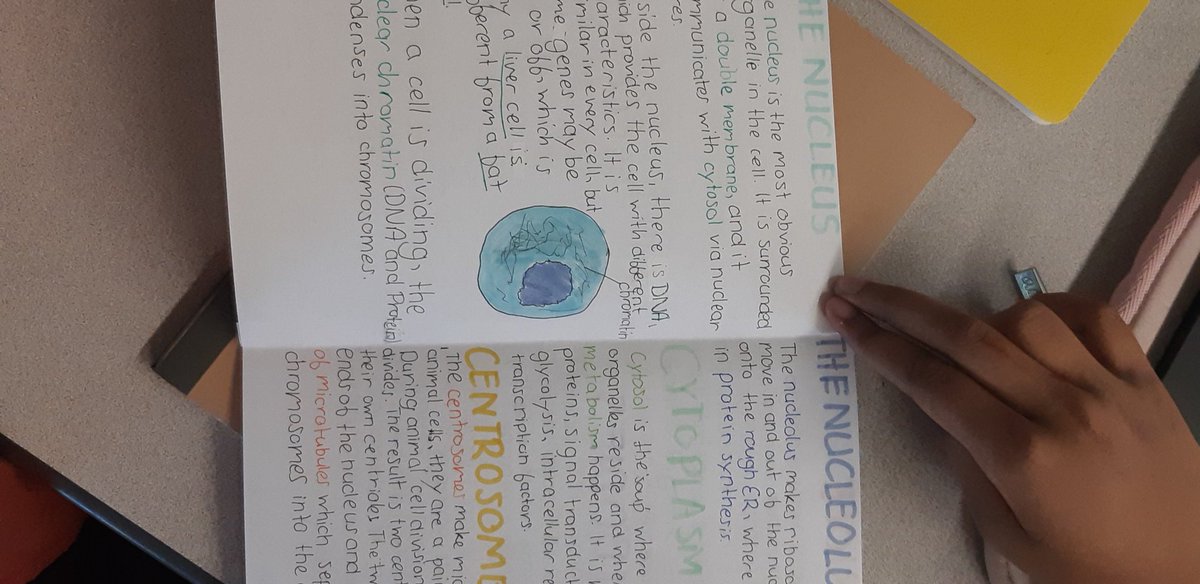 HE NUCLEUS
e nucleus is the most obvious
rganelle in the cell. It is surrounded
a double membrane, and it
mmunicates with cytosol via nuclear
res.
side the nucleus, there is DNA,
ich provides the cell with different
aracteristics. It is
milar in every cell, but
me genes may be
or off, which is
y a liver cell is
fferent from a bat
chromatin
en a cell is dividing, the
clear chromatin (DNA and Protein)
ndenses into chromosomes.
THE NUCLEOLU
The nucleolus makes riboso
move in and out of the nuc
onto the rough ER, where
in protein synthesis.
CYTOPLASM
Cytosol is the 'soup' where
organelles reside and whe
metabolism happens. It is
proteins, signal transduct
glycolysis, intracellular re
transcription factors.
CENTROSOME
The centrosomes make mic
animal cells, they are a pai
During animal cell division
divides. The result is two cent
their own centrioles. The tw
ends of the nucleus and
of microtubules which sep
chromosomes into the